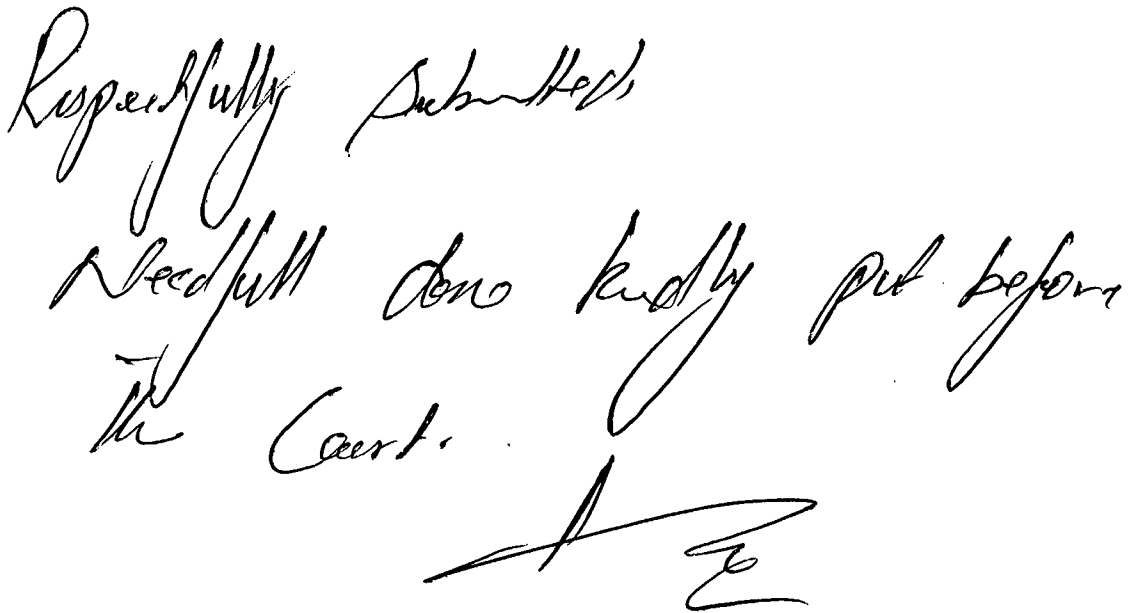 Respectfully Submitted,
Needfull done kindly put before
The Court.